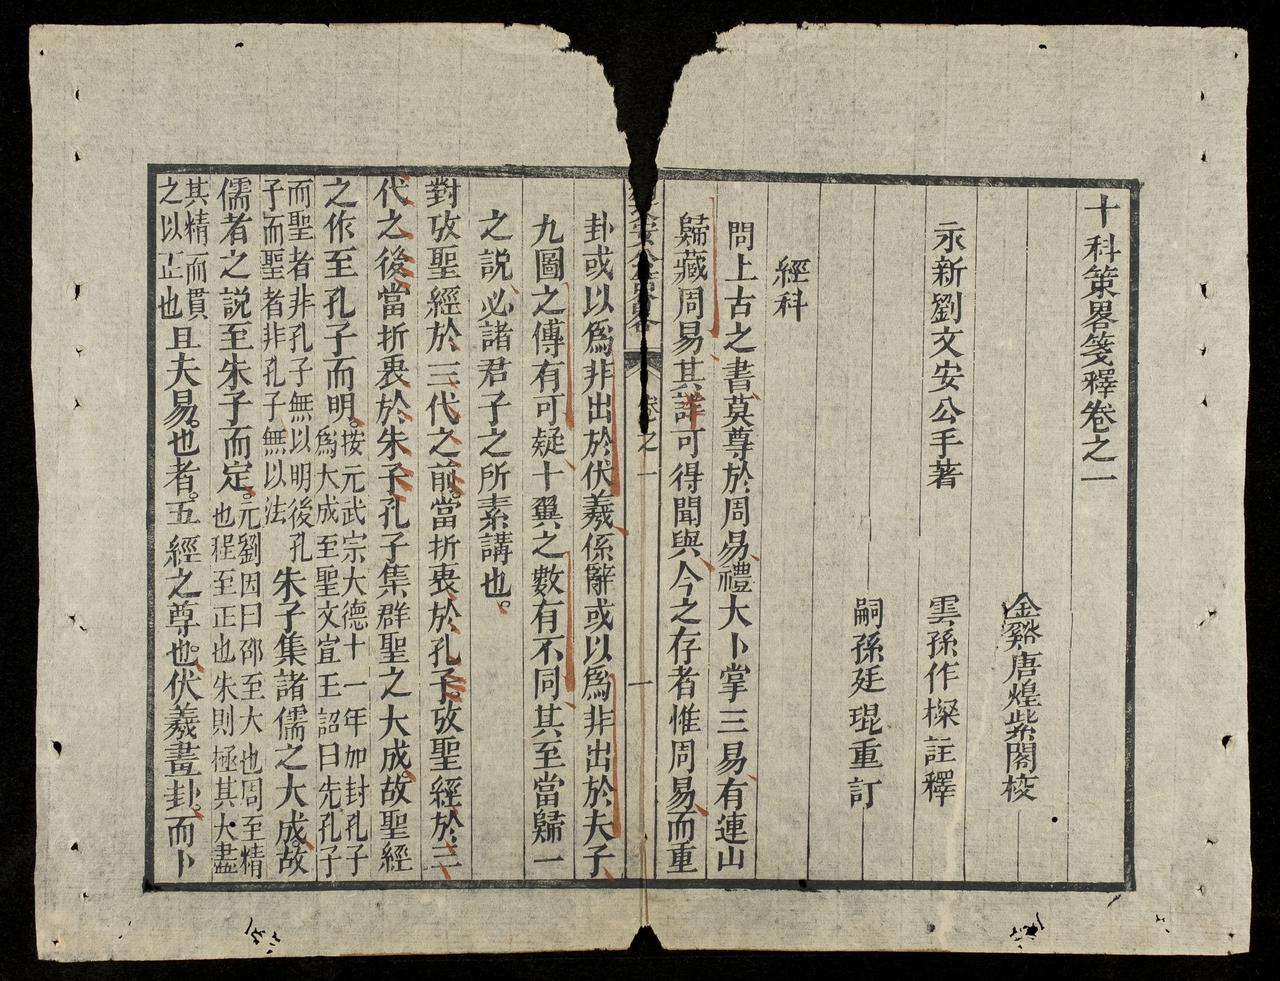 十科策畧箋釋卷之一
金谿唐煌紫閣校
永新劉文安公手著
雲孫作樑註釋
嗣孫廷琨重訂
經科
問上古之書莫尊於周易禮大卜掌三易有連山
歸藏周易其詳可得聞與今之存者惟周易而重
卦或以爲非出於伏羲係辭或以爲非出於夫子
九圖之傳有可疑十翼之數有不同其至當歸一
之說必諸君子之所素講也
對攷聖經於三代之前當折衷於孔子攷聖經於三
代之後當折衷於朱子孔子集群聖之大成故聖經
之作至孔子而明按元武宗大德十一年加封孔子爲大成至聖文宣王詔曰先孔子
而聖者非孔子無以明後孔子而聖者非孔子無以法朱子集諸儒之大成故
儒者之說至朱子而定元劉因曰邵至大也周至精也程至正也朱則極其大盡
其精而貫之以正也且夫易也者五經之尊也伏羲畫卦而卜
卷之一
一